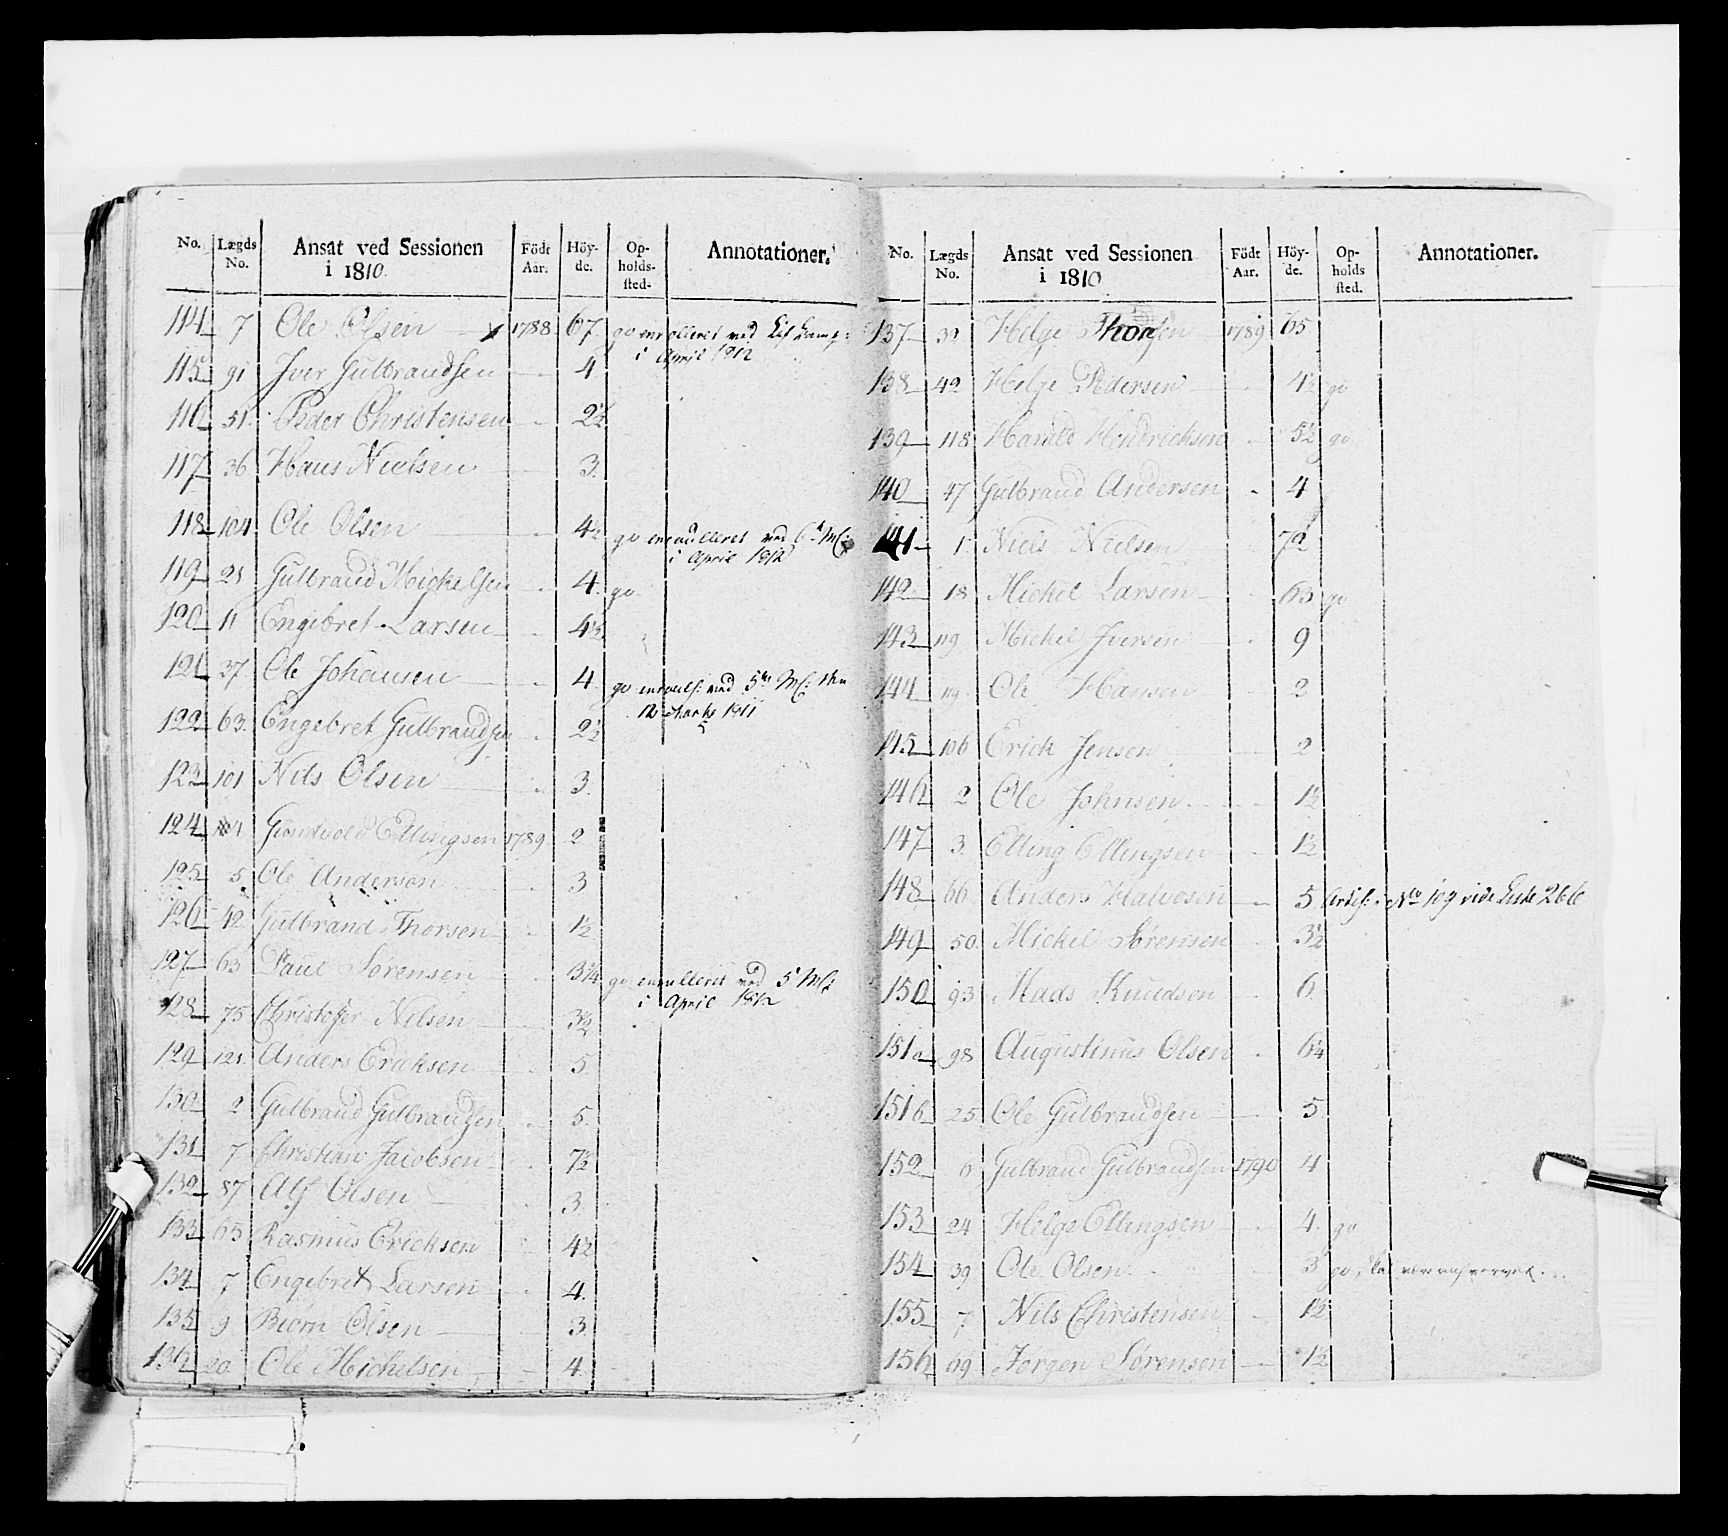 No. Lægds No. Ansat ved Sessionen i 1810. Födt Aar. Höyde. Opholdssted. Annotationer.
114 7 Ole Olsen 1788 67. go enrolleret ved
i April 1812
115 91 Iver Gulbrandsen 4
116 51. Peder Christensen 2½
117 36 Hans Nielsen 3.
118 104 Ole Olsen 4½ go enrulleret ved 6t
i April 1812
119 21 Gulbrand Mickelsen 4. go
120 11 Engebret Larsen 4½
121 37 Ole Johansen 4. go ved 5te
12 Marts 1811
122 63. Engebret Gulbrandsen 2½
123 101 Nils Olsen 3.
124 Gundvold Ellingsen 1789 2
125 5. Ole Andersen 3
126 42 Gulbrand Thorsen 1½
127 63 Paul Sørensen 3¼ go enrulleret ved 5t
i April 1812
128 75 Christofer Nilsen 3½
129 121 Anders Ericksen 5.
130 2 Gulbrand Gulbrandsen 5.
131 7 Christian Jacobsen 7½
132 87 Alf Olsen 3.
133 65 Rasmus Ericksen 4½
134 7 Engebret Larsen 4.
135 9 Biørn Olsen 3.
136 20 Ole Michelsen 4.
No. Lægds No. Ansat ved Sessionen i 1810 Födt Aar. Höyde. Opholds sted. Annotationer.
137 39 Helge Thorsen 1789 65
138 42 Helge Pedersen 4½ go
139 118 Harald Hendricksen 5½ go
140 47 Gulbrand Andersen 4
141 1 Niels Nielsen 7½
142 18 Mickel Larsen 63 go
143 119 Mickel Iversen 9
144 119 Ole Hansen 2
145 106 Erick Jensen 2
146 2 Ole Johnsen 1½
147 3. Elling Ellingsen 1½
148 66 Anders Halvorsen 5. No 109 vide Liste 266
149 50. Mickel Sørensen 3½
150 93 Mads Knudsen 6.
151a 98 Augustinus Olsen 6¼
151b 25 Ole Gulbrandsen 5
152 6 Gulbrand Gulbrandsen 1790 4
153 24 Helge Ellingsen 4. go
154 39 Ole Olsen 3 go,
155 7 Nils Christensen 1½
156 69 Jørgen Sørensen 1½